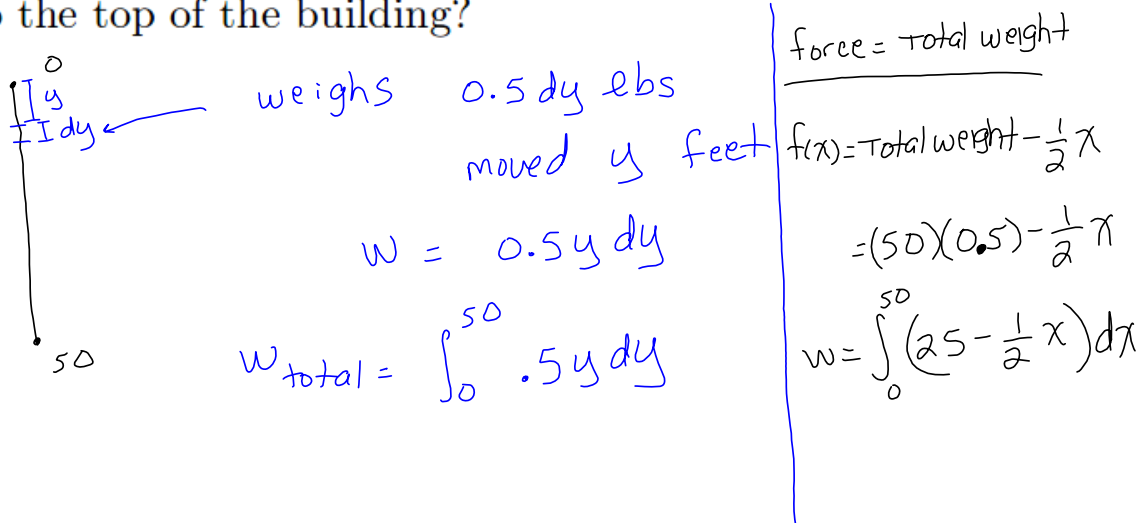 the top of the building?
0
y
dy
50
weighs 0.5 dy lbs
moved y feet
W = 0.5 y dy
W total = ∫₀⁵⁰ .5 y dy
force = Total weight
f(x) = Total weight - 1/2 x
= (50)(0.5) - 1/2 x
w = ∫₀⁵⁰ (25 - 1/2 x) dx